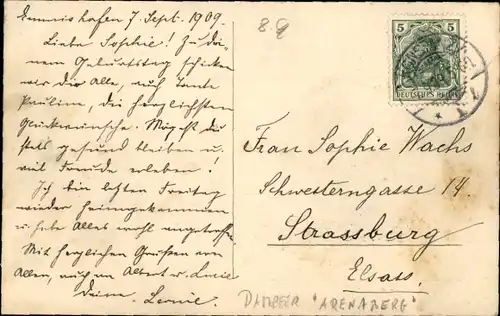 7. Sept. 1909.
Liebe Sophie! Zu dei-
nem Geburtstag schicken
wir dir Alle, auch Tante
Pauline, die herzlichsten
Glückwünsche. Mögest du
stets gesund bleiben u.
viel Freude erleben!
Ich bin letzten Freitag
wieder heimgekommen
u. habe Alles wohl angetroffen.
Mit herzlichen Grüssen von
Allen, auch an Albert u.
Deine
5
5
DEUTSCHES REICH
Frau Sophie Wachs
Schwesterngasse 14
Strassburg
Elsass.
DAMPFER "ARENABERG"